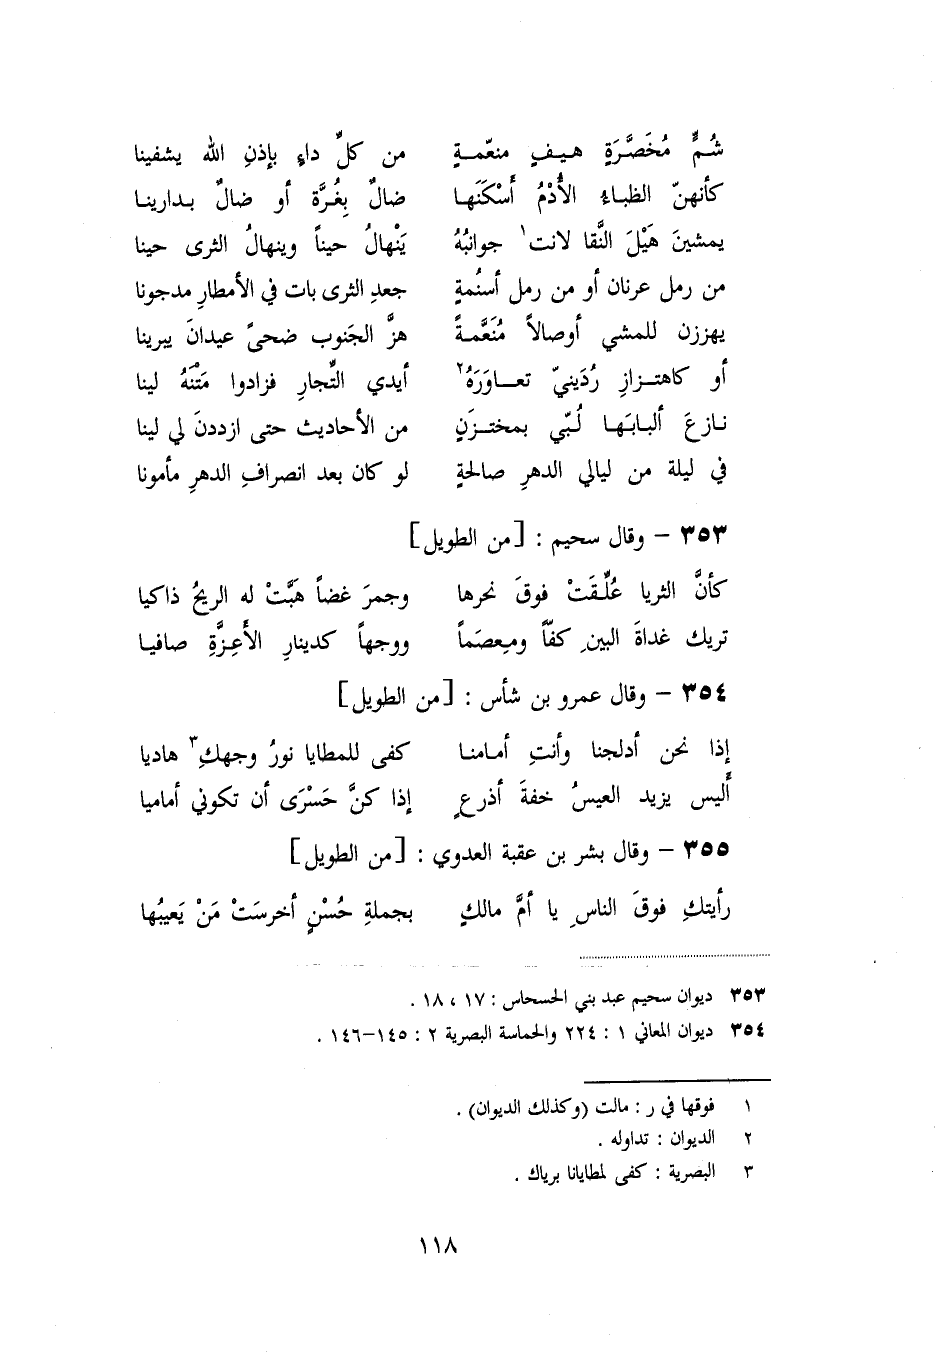 شُمٍّ مُخَصَّرَةٍ هيفٍ منعّمةٍ من كلِّ داءٍ بإذنِ الله يشفينا
كأنهنّ الظباءُ الأُدْمُ أَسْكَنَها ضالٌ بِغُرَّة أو ضالٌ بدارينا
يمشينَ هَيْلَ النَّقا لانت١ جوانبُهُ يَنْهالُ حيناً وينهالُ الثرى حينا
من رمل عرنان أو من رمل أسنُمةٍ جعدِ الثرى بات في الأمطارِ مدجونا
يهززن للمشي أوصالاً مُنَعَّمةً هزَّ الجَنوب ضحىً عيدانَ يبرينا
أو كاهتزازِ رُدَينيّ تعاوَرَهُ٢ أيدي التِّجارِ فزادوا مَتْنَهُ لينا
نازعَ ألبابَها لُبّي بمختزَنٍ من الأحاديث حتى ازددنَ لي لينا
في ليلة من ليالي الدهرِ صالحةٍ لو كان بعد انصرافِ الدهرِ مأمونا
٣٥٣ – وقال سحيم : [من الطويل]
كأنَّ الثريا عُلِّقَتْ فوقَ نحرها وجمرَ غضاً هَبَّتْ له الريحُ ذاكيا
تريك غداةَ البينِ كفّاً ومِعصَماً ووجهاً كدينارِ الأَعِزَّةِ صافيا
٣٥٤ – وقال عمرو بن شأس : [من الطويل]
إذا نحن أدلجنا وأنتِ أمامنا كفى للمطايا نورُ وجهكِ٣ هاديا
أَليس يزيد العيسُ خفةَ أذرعٍ إذا كنَّ حَسْرَى أن تكوني أماميا
٣٥٥ – وقال بشر بن عقبة العدوي : [من الطويل]
رأيتكِ فوقَ الناسِ يا أمَّ مالكٍ بجملةِ حُسْنٍ أخرسَتْ مَنْ يَعيبُها
٣٥٣ ديوان سحيم عبد بني الحسحاس : ١٧ ، ١٨ .
٣٥٤ ديوان المعاني ١ : ٢٢٤ والحماسة البصرية ٢ : ١٤٥–١٤٦ .
١ فوقها في ر : مالت (وكذلك الديوان) .
٢ الديوان : تداوله .
٣ البصرية : كفى لمطايانا برياك .
١١٨